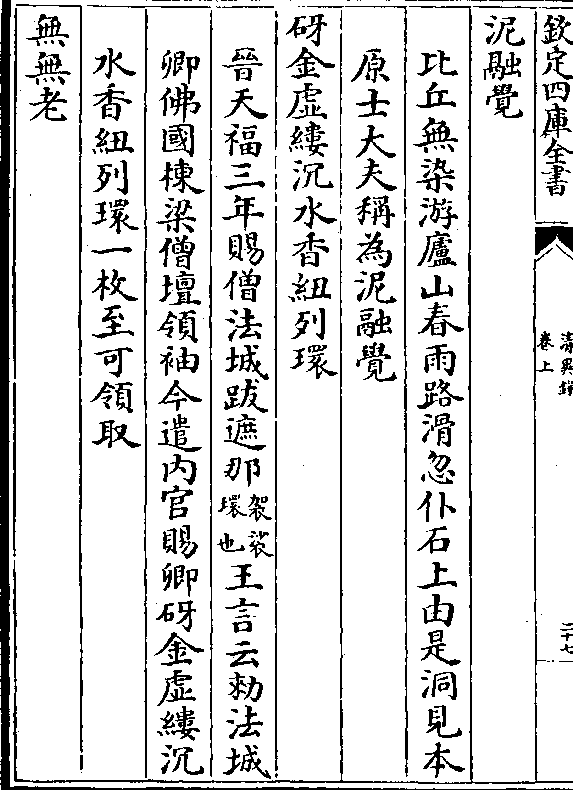 欽定四庫全書
清異錄
卷上
二十七
泥融覺
比丘無染游廬山春雨路滑忽仆石上由是洞見本
原士大夫稱為泥融覺
砑金虛縷沉水香紐列環
晉天福三年賜僧法城跋遮那袈裟環也王言云勑法城
卿佛國棟梁僧壇領袖今遣内官賜卿砑金虛縷沉
水香紐列環一枚至可領取
無無老